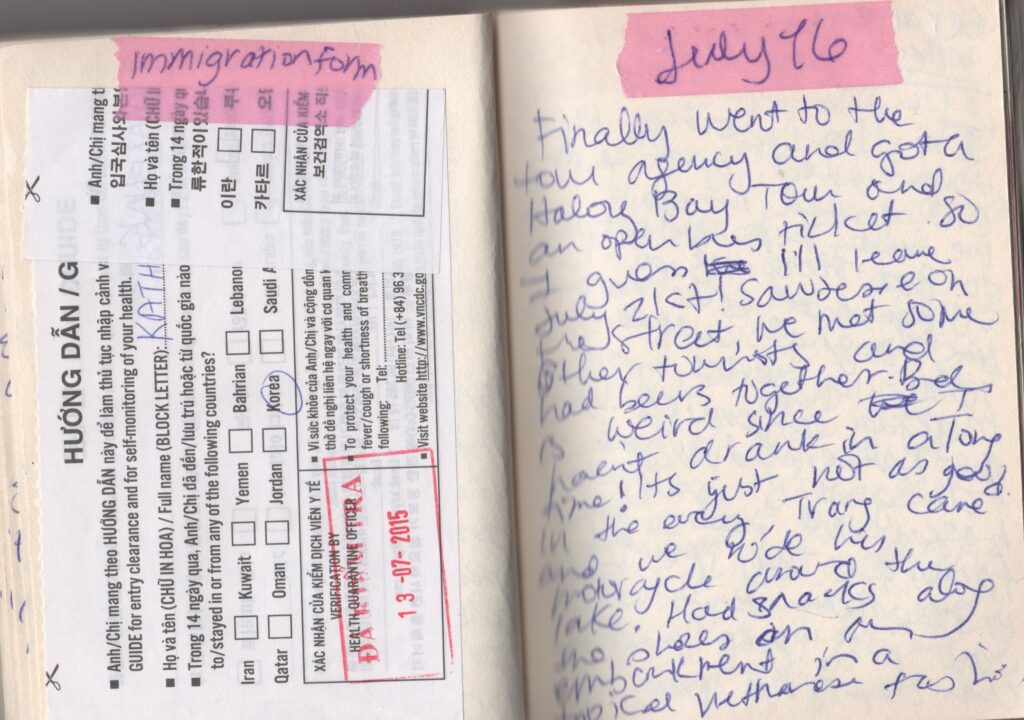 immigration form
HƯỚNG DẪN / G
■ Anh/Chị mang theo HƯỚNG DẪN này để làm thủ tục nhập cảnh v
GUIDE for entry clearance and for self-monitoring of your health.
■ Họ và tên (CHỮ IN HOA) / Full name (BLOCK LETTER): KATH
■ Trong 14 ngày qua, Anh/Chị đã đến/lưu trú hoặc từ quốc gia nào
to/stayed in or from any of the following countries?
Iran Kuwait Yemen Bahrian Lebano
Qatar Oman Jordan Korea Saudi A
XÁC NHẬN CỦA KIỂM DỊCH VIÊN Y TẾ
VERIFICATION BY
HEALTH QUARANTINE OFFICER
ĐÃ KIỂM TRA
13-07-2015
■ Vì sức khỏe của Anh/Chị và cộng đồn
thở đề nghị liên hệ ngay với cơ quan k
■ To protect your health and comm
fever/cough or shortness of breath
following: Tel:
Hotline: Tel (+84) 963
■ Visit website http://www.vncdc.go
■ Anh/Chị mang t
입국심사와
■ Họ và tên (CHỮ
■ Trong 14 ngày q
류한적이 있습
이란
카타르
XÁC NHẬN CỦA KIỂM
보건검역소
July 16
Finally went to the
tour agency and got a
Halong Bay Tour and
an open bus ticket so
I guess I'll leave
July 21st! Saw Desire on
the street, we met some
other tourists and
had beers together.
is weird since I
havent drank in a long
time! Its just not as good.
In the eveng, Trang came
and we ride his
motorcycle around the
lake. Had snacks along
the shoes on an
embankment in a
typical Vietnamese